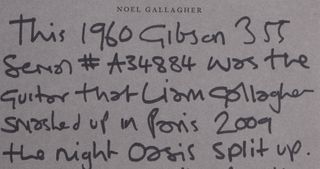 NOEL GALLAGHER
This 1960 Gibson 355
Serial # A34884 was the
Guitar that Liam Gallagher
smashed up in Paris 2009
the night Oasis split up.